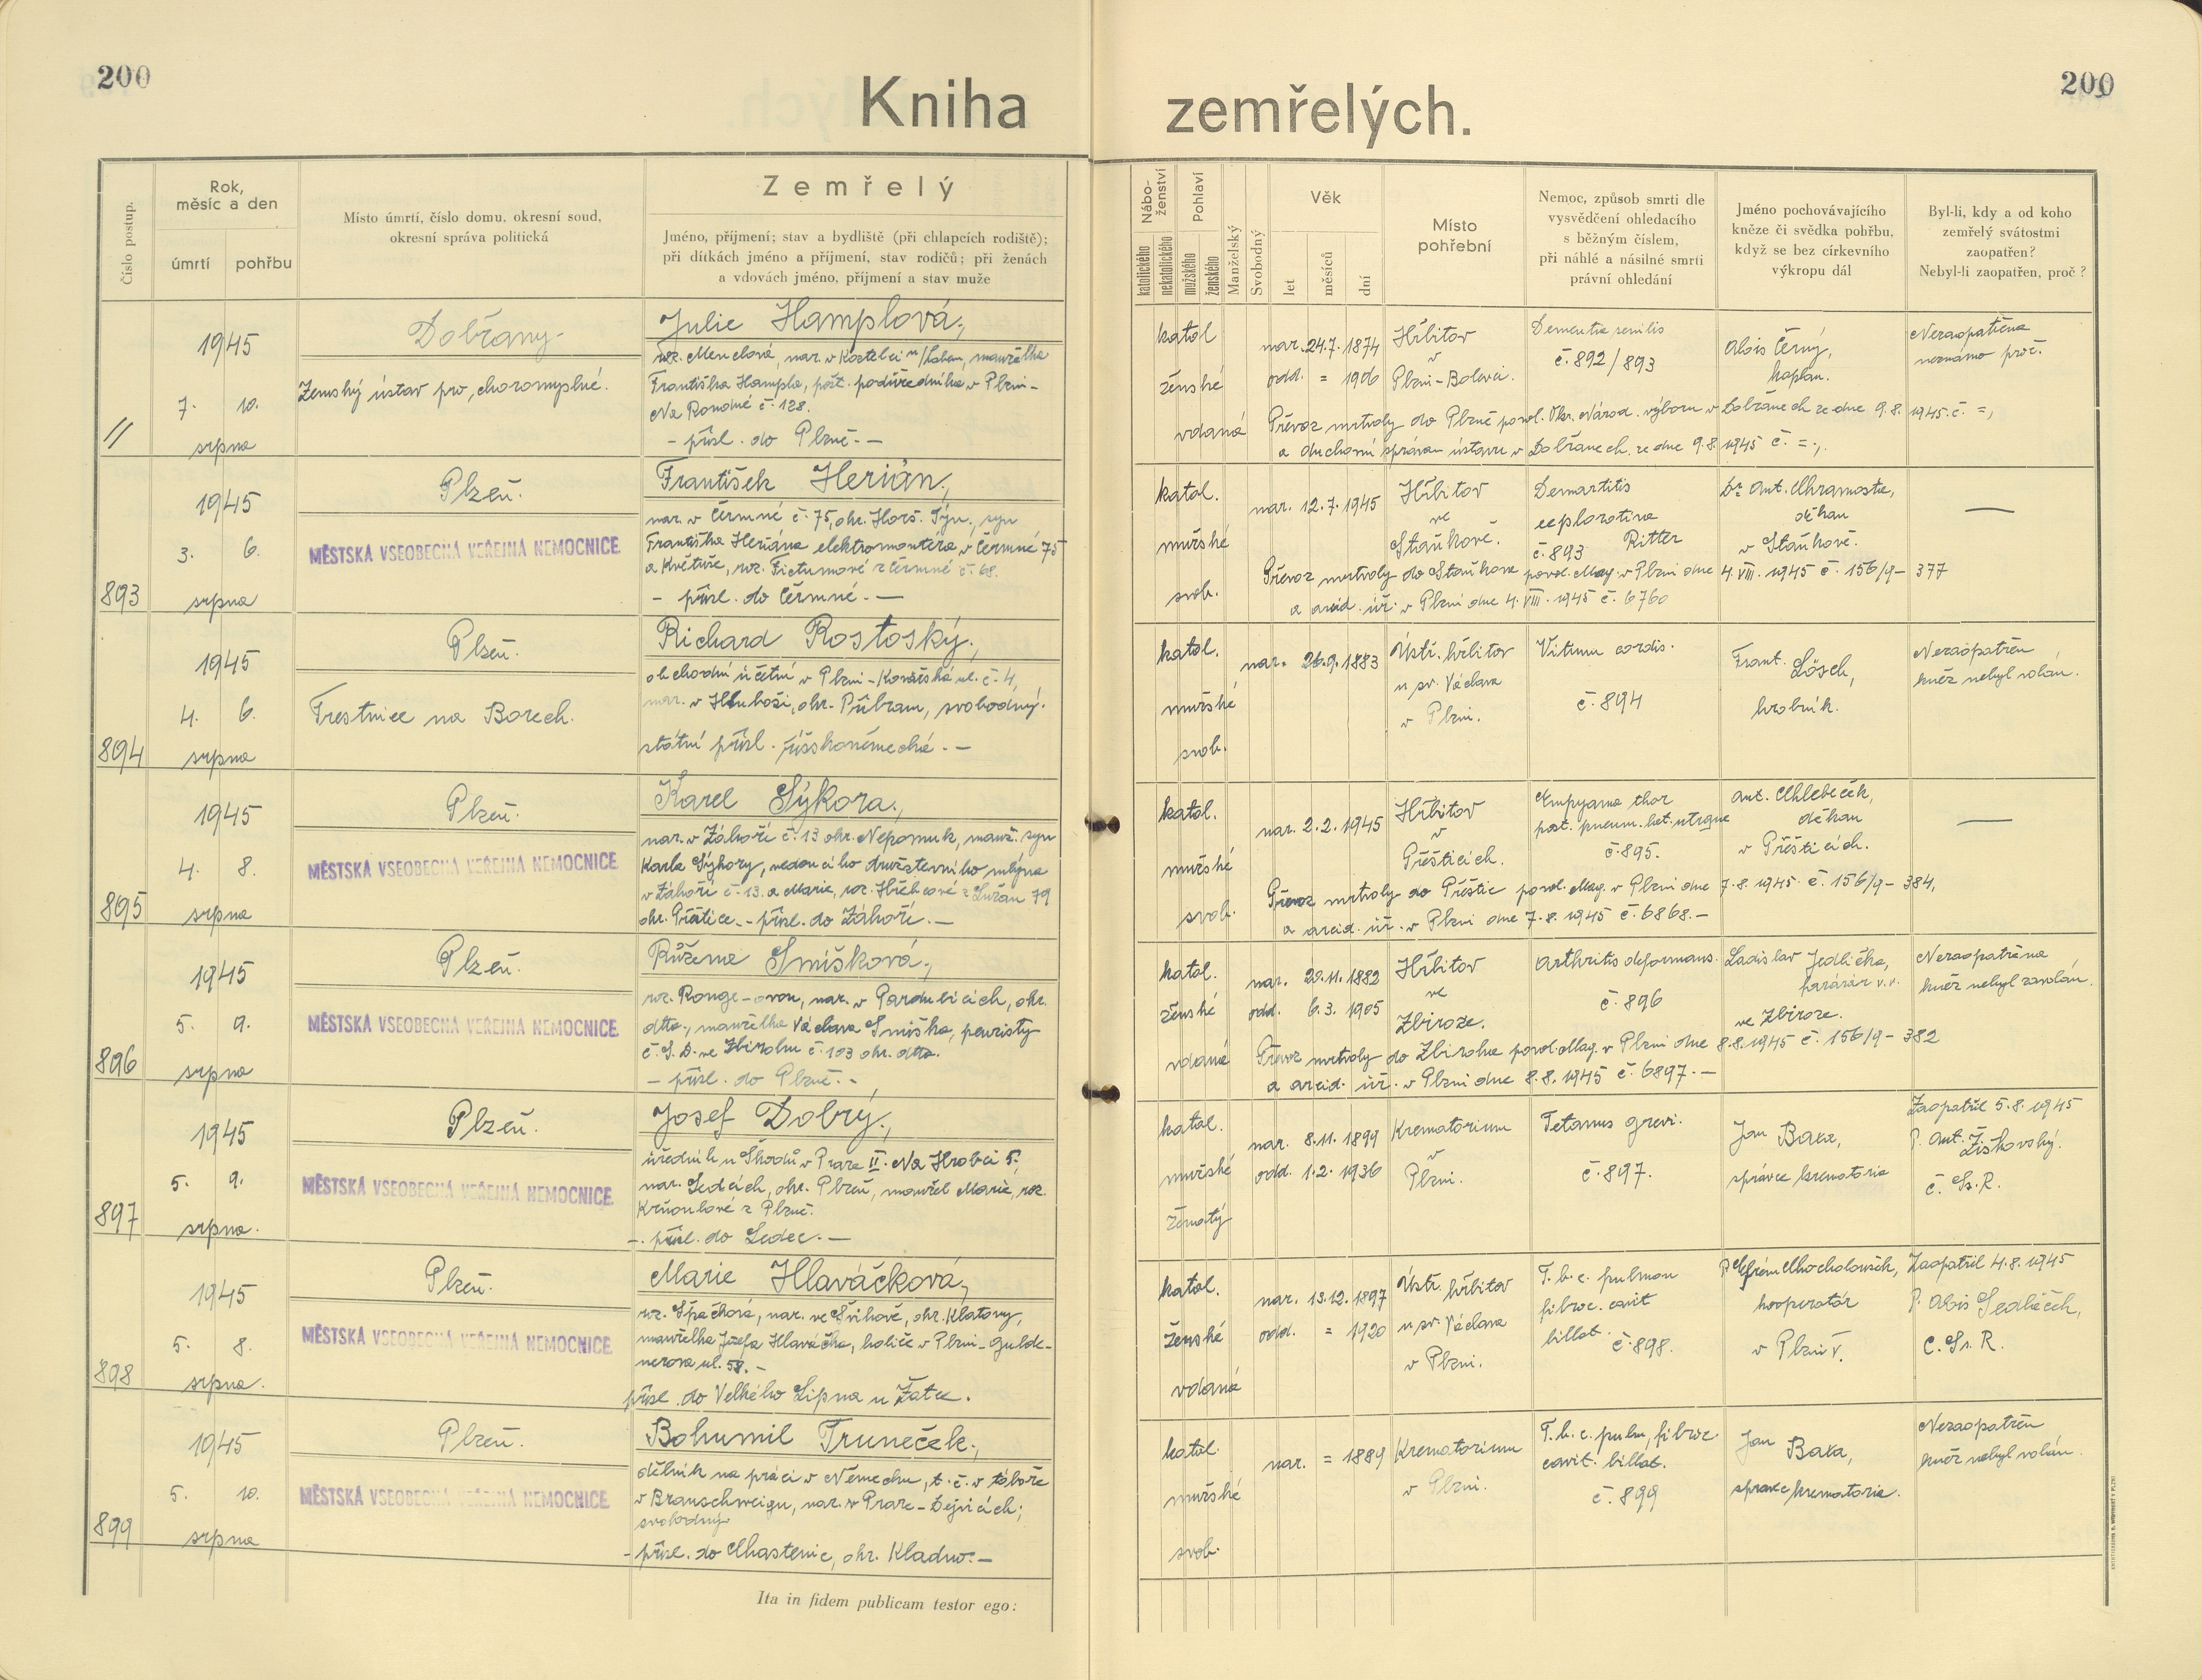 200
200
Kniha zemřelých.
Číslo postup.
Rok, měsíc a den
úmrtí
pohřbu
Místo úmrtí, číslo domu, okresní soud,
okresní správa politická
Zemřelý
Jméno, příjmení; stav a bydliště (při chlapcích rodiště);
při dítkách jméno a příjmení, stav rodičů; při ženách
a vdovách jméno, příjmení a stav muže
Náboženství
katolického
nekatolického
Pohlaví
mužského
ženského
Manželský
Svobodný
Věk
let
měsíců
dní
Místo
pohřební
Nemoc, způsob smrti dle
vysvědčení ohledacího
s běžným číslem,
při náhlé a násilné smrti
právní ohledání
Jméno pochovávajícího
kněze či svědka pohřbu,
když se bez církevního
výkropu dál
Byl-li, kdy a od koho
zemřelý svátostmi
zaopatřen?
Nebyl-li zaopatřen, proč?
//
1945
7. 10.
srpna
Dobřany
Zemský ústav pro choromyslné.
Julie Hamplová,
roz. Menclová, nar. v Kostelci n/Labem, manželka
Františka Hampla, pošt. podúředníka v Plzni-
Na Roudné č. 128.
- přísl. do Plzně. -
katol
ženské
vdaná
nar. 24.7. 1874
odd. = 1906
Hřbitov
v
Plzni-Bolevci.
Dementia senilis
č. 892/893
Alois Černý,
kaplan.
Nezaopatřena
neznámo proč.
Převoz mrtvoly do Plzně povol. Okr. Národ. výboru v Dobřanech ze dne 9.8. 1945. č. =,
a duchovní správou ústavu v Dobřanech ze dne 9.8. 1945 č. =;.
893
1945
3. 6.
srpna
Plzeň.
MĚSTSKÁ VŠEOBECNÁ VEŘEJNÁ NEMOCNICE
František Herián,
nar. v Čermné č. 75, okr. Horš. Týn, syn
Františka Heriána elektromontéra v Čermné 75
a Květuše, roz. Tietumové z Čermné č. 68.
- přísl. do Čermné. -
katol.
mužské
svob.
nar. 12.7. 1945
Hřbitov
ve
Staňkově.
Dermartitis
exploratina
č. 893 Ritter
Dr. Ant. Chramosta,
děkan
v Staňkově.
—
Převoz mrtvoly do Staňkova povol. Mag. v Plzni dne 4. VIII. 1945 č. 156/9 - 377
a arcid. úř. v Plzni dne 4. VIII. 1945 č. 6760
894
1945
4. 6.
srpna
Plzeň.
Trestnice na Borech.
Richard Rostoský,
obchodní účetní v Plzni-Kovářská ul. č. 4,
nar. v Hluboši, okr. Příbram, svobodný.
státní přísl. říšskoněmecké. -
katol.
mužské
svob.
nar. 26.9. 1883
Ústř. hřbitov
u sv. Václava
v Plzni.
Vitium cordis.
č. 894
Frant. Lösch,
hrobník.
Nezaopatřen
kněz nebyl volán.
895
1945
4. 8.
srpna
Plzeň.
MĚSTSKÁ VŠEOBECNÁ VEŘEJNÁ NEMOCNICE
Karel Sýkora,
nar. v Záhoří č. 13 okr. Nepomuk, manž. syn
Karla Sýkory, vedoucího družstevního mlýna
v Záhoří č. 13. a Marie, roz. Hřebcové z Lužan 79
okr. Přeštice. - přísl. do Záhoří. -
katol.
mužské
svob.
nar. 2.2. 1945
Hřbitov
v
Přešticích.
Empyama thor
post. pneum. lat. utrque
č. 895.
Ant. Chlebeček,
děkan
v Přešticích.
—
Převoz mrtvoly do Přeštic povol. Mag. v Plzni dne 7.8. 1945 č. 156/9 - 384,
a arcid. úř. v Plzni dne 7.8. 1945 č. 6868. -
896
1945
5. 9.
srpna
Plzeň.
MĚSTSKÁ VŠEOBECNÁ VEŘEJNÁ NEMOCNICE
Růžena Smíšková,
roz. Ronge-ovou, nar. v Pardubicích, okr.
dtto., manželka Václava Smíška, penristy
Č.S.D. ve Zbirohu č. 103 okr. dtto.
- přísl. do Plzně. -
katol.
ženské
vdaná
nar. 20.11. 1882
odd. 6.3. 1905
Hřbitov
ve
Zbiroze.
Arthritis deformans.
č. 896
Ladislav Jedlička,
farářář v.v.
ve Zbiroze.
Nezaopatřena
kněz nebyl zavolán.
Převoz mrtvoly do Zbiroha povol. Mag. v Plzni dne 8.8. 1945 č. 156/9 - 382
a arcid. úř. v Plzni dne 8.8. 1945 č. 6897. -
897
1945
5. 9.
srpna.
Plzeň.
MĚSTSKÁ VŠEOBECNÁ VEŘEJNÁ NEMOCNICE
Josef Dobrý,
úředník u Škodů v Praze II. Na Hrobci 5.,
nar. Ledcích, okr. Plzeň, manžel Marie, roz.
Krňoulové z Plzně.
-. přísl. do Ledec. -
katol.
mužské
ženatý
nar. 8.11. 1899
odd. 1.2. 1936
Krematorium
v
Plzni.
Tetanus gravi.
č. 897.
Jan Baxa,
správce krematoria
Zaopatřil 5.8. 1945
P. Ant. Žižkovský.
C. Ss. R.
898
1945
5. 8.
srpna.
Plzeň.
MĚSTSKÁ VŠEOBECNÁ VEŘEJNÁ NEMOCNICE
Marie Hlaváčková,
roz. Špačková, nar. ve Švihově, okr. Klatovy,
manželka Josefa Hlaváčka, holiče v Plzni-Gulde-
nerova ul. 58. -
přísl. do Velkého Lipna u Žatce.
katol.
ženské
vdaná
nar. 13.12. 1897
odd. = 1920
Ústř. hřbitov
u sv. Václava
v Plzni.
T.b.c. pulmon
fibroc. cavit
billat. č. 898.
kooperátór
v Plzni V.
Zaopatřil 4.8. 1945
P. Alois Sedláček,
C. Ss. R.
899
1945
5. 10.
srpna
Plzeň.
MĚSTSKÁ VŠEOBECNÁ VEŘEJNÁ NEMOCNICE
Bohumil Truneček,
dělník na práci v Německu, t. č. v táboře
v Braunschweigu, nar. v Praze-Dejvicích;
svobodný
- přísl. do Chastenic, okr. Kladno. -
katol.
mužské
svob.
nar. = 1889
Krematorium
v Plzni.
T.b.c. pulm, fibroc.
cavit. billat.
č. 899
Jan Baxa,
správce krematoria.
Nezaopatřen
kněz nebyl volán.
Ita in fidem publicam testor ego: